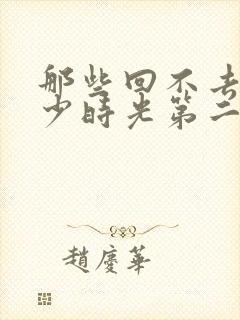 那些回不去
少时光第二
趙慶華